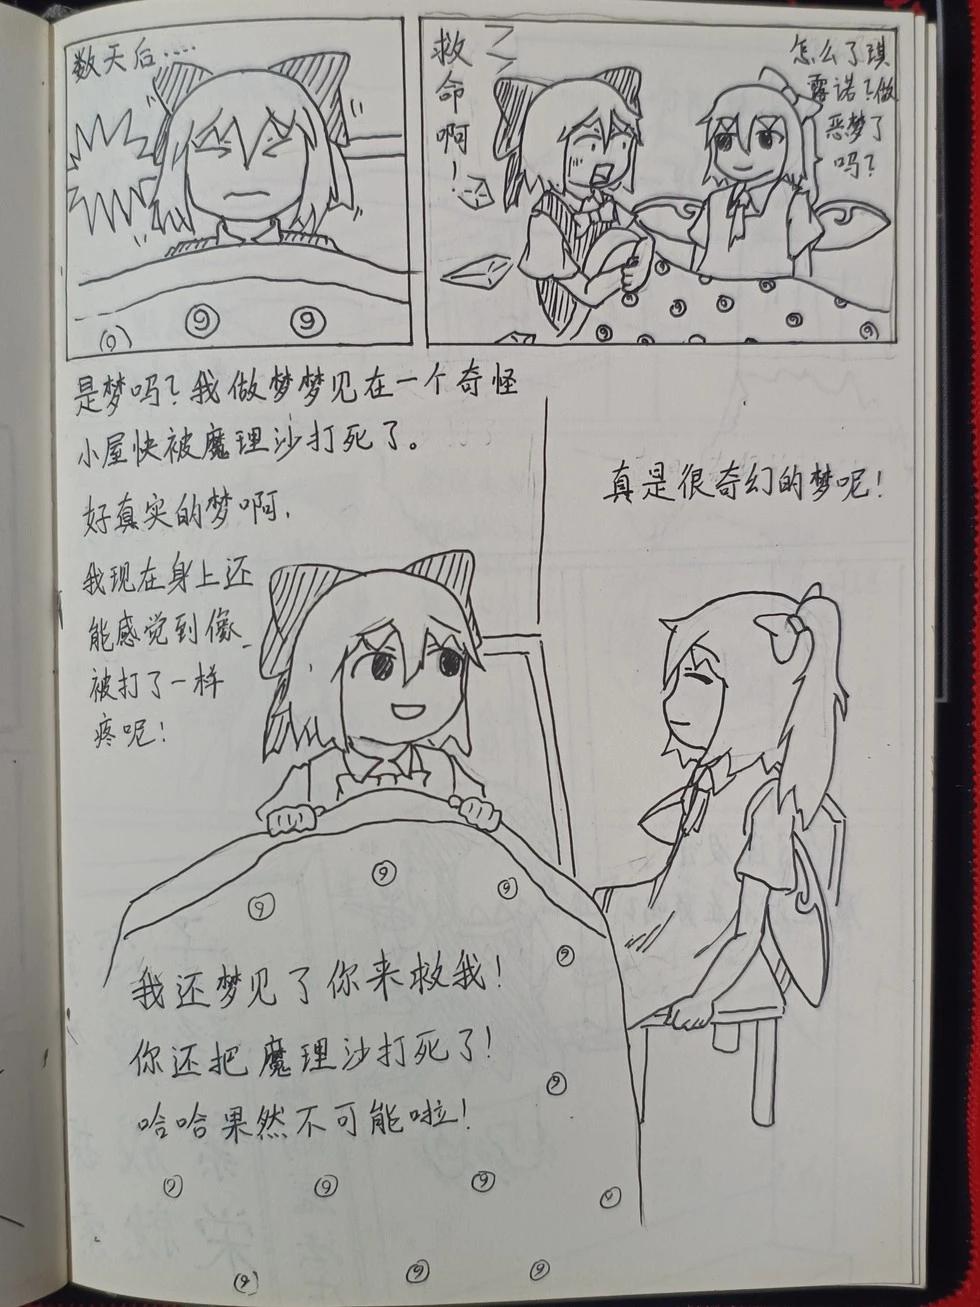 数天后····
救
命
啊！
怎么了琪
露诺？做
恶梦了
吗？
是梦吗？我做梦梦见在一个奇怪
小屋快被魔理沙打死了。
好真实的梦啊，
我现在身上还
能感觉到像
被打了一样
疼呢！
真是很奇幻的梦呢！
我还梦见了你来救我！
你还把魔理沙打死了！
哈哈果然不可能啦！
⑨ ⑨ ⑨
⑨ ⑨ ⑨
⑨
⑨
⑨ ⑨ ⑨ ⑨
⑨ ⑨ ⑨